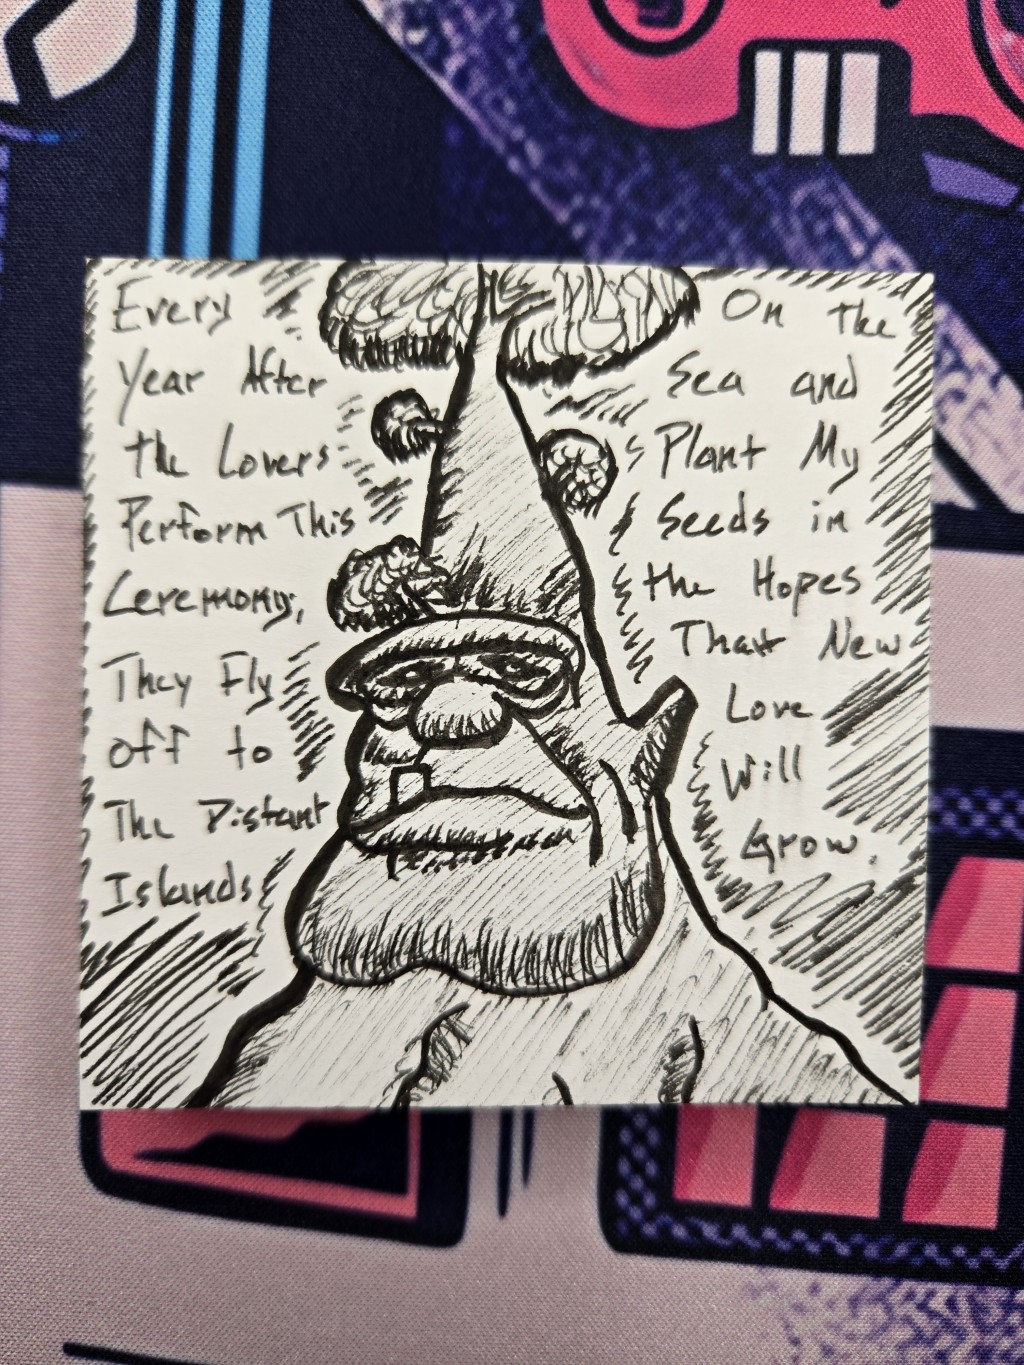 Every
Year After
the Lovers
Perform This
Ceremony,
They Fly
off to
The Distant
Islands
On the
Sea and
Plant My
Seeds in
the Hopes
That New
Love
Will
Grow.